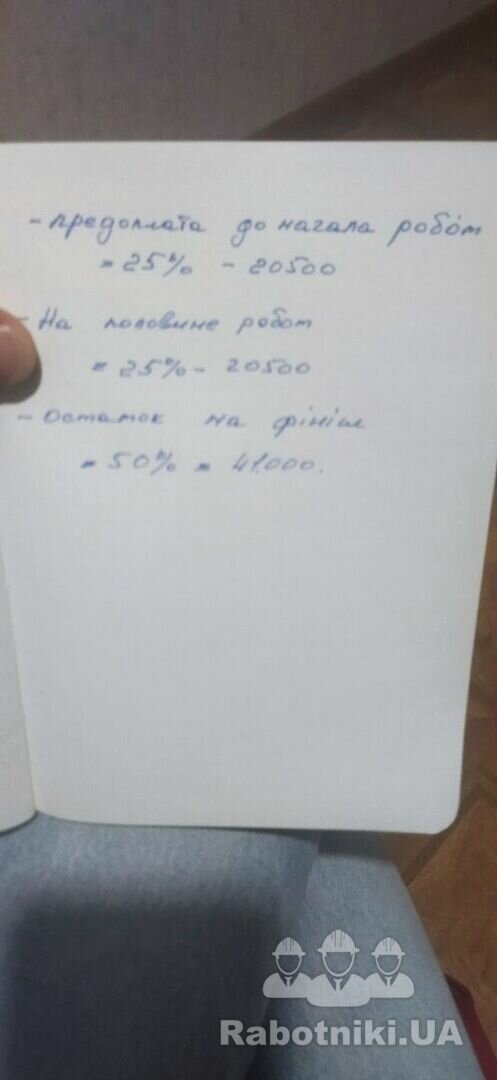 - предоплата до начала робот
= 25% - 20500
- На половине робот
= 25% - 20500
- Остаток на фініш
= 50% = 41000.
Rabotniki.UA